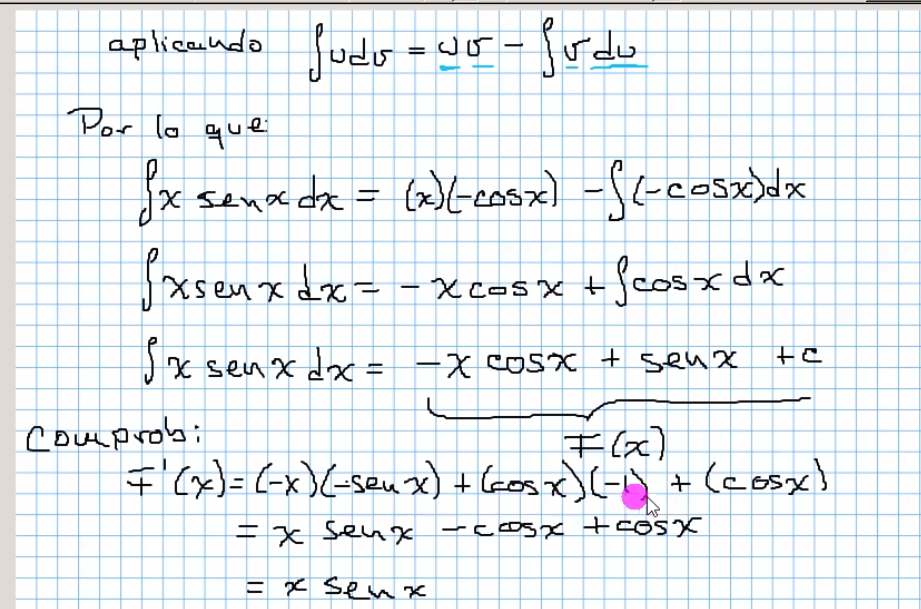 aplicando ∫udv = uv - ∫vdu
Por lo que:
∫x senx dx = (x)(-cosx) - ∫(-cosx)dx
∫xsenx dx = -xcosx + ∫cosx dx
∫x senx dx = -x cosx + senx + c
F(x)
Comprob:
F'(x) = (-x)(-senx) + (cosx)(-1) + (cosx)
= x senx - cosx + cosx
= x senx